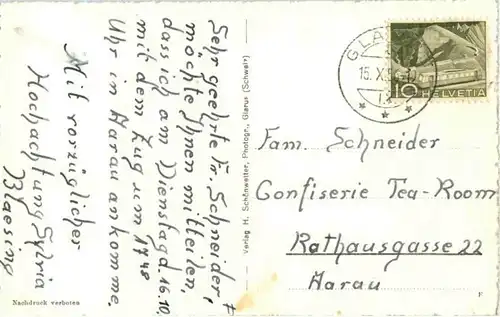 Sehr geehrte Fr. Schneider,
möchte Ihnen mitteilen,
dass ich am Dienstag d. 16.10.
mit dem Zug um 17 48
Uhr in Aarau ankomme.
Mit vorzüglicher
Hochachtung Sylvia
Blaesing
Nachdruck verboten
Verlag H. Schönwetter, Photogr., Glarus (Schweiz)
GLA
15. X. 5
10 HELVETIA
Fam. Schneider
Confiserie Tea-Room
Rathausgasse 22
Aarau
F